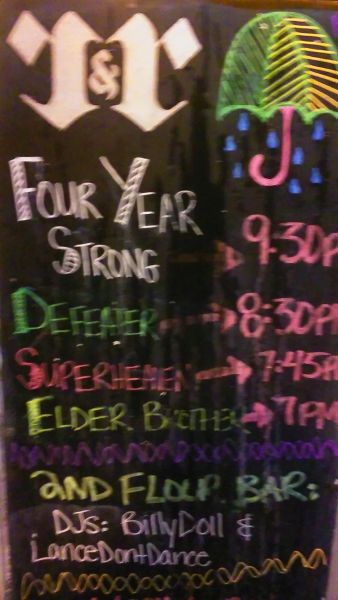 r&r
FOUR YEAR
STRONG 9:30P
DEFEATER 8:30PM
SUPERHEAVEN 7:45P
ELDER BROTHER 7PM
2ND FLOUR BAR:
DJs: BillyDoll &
LanceDontDance